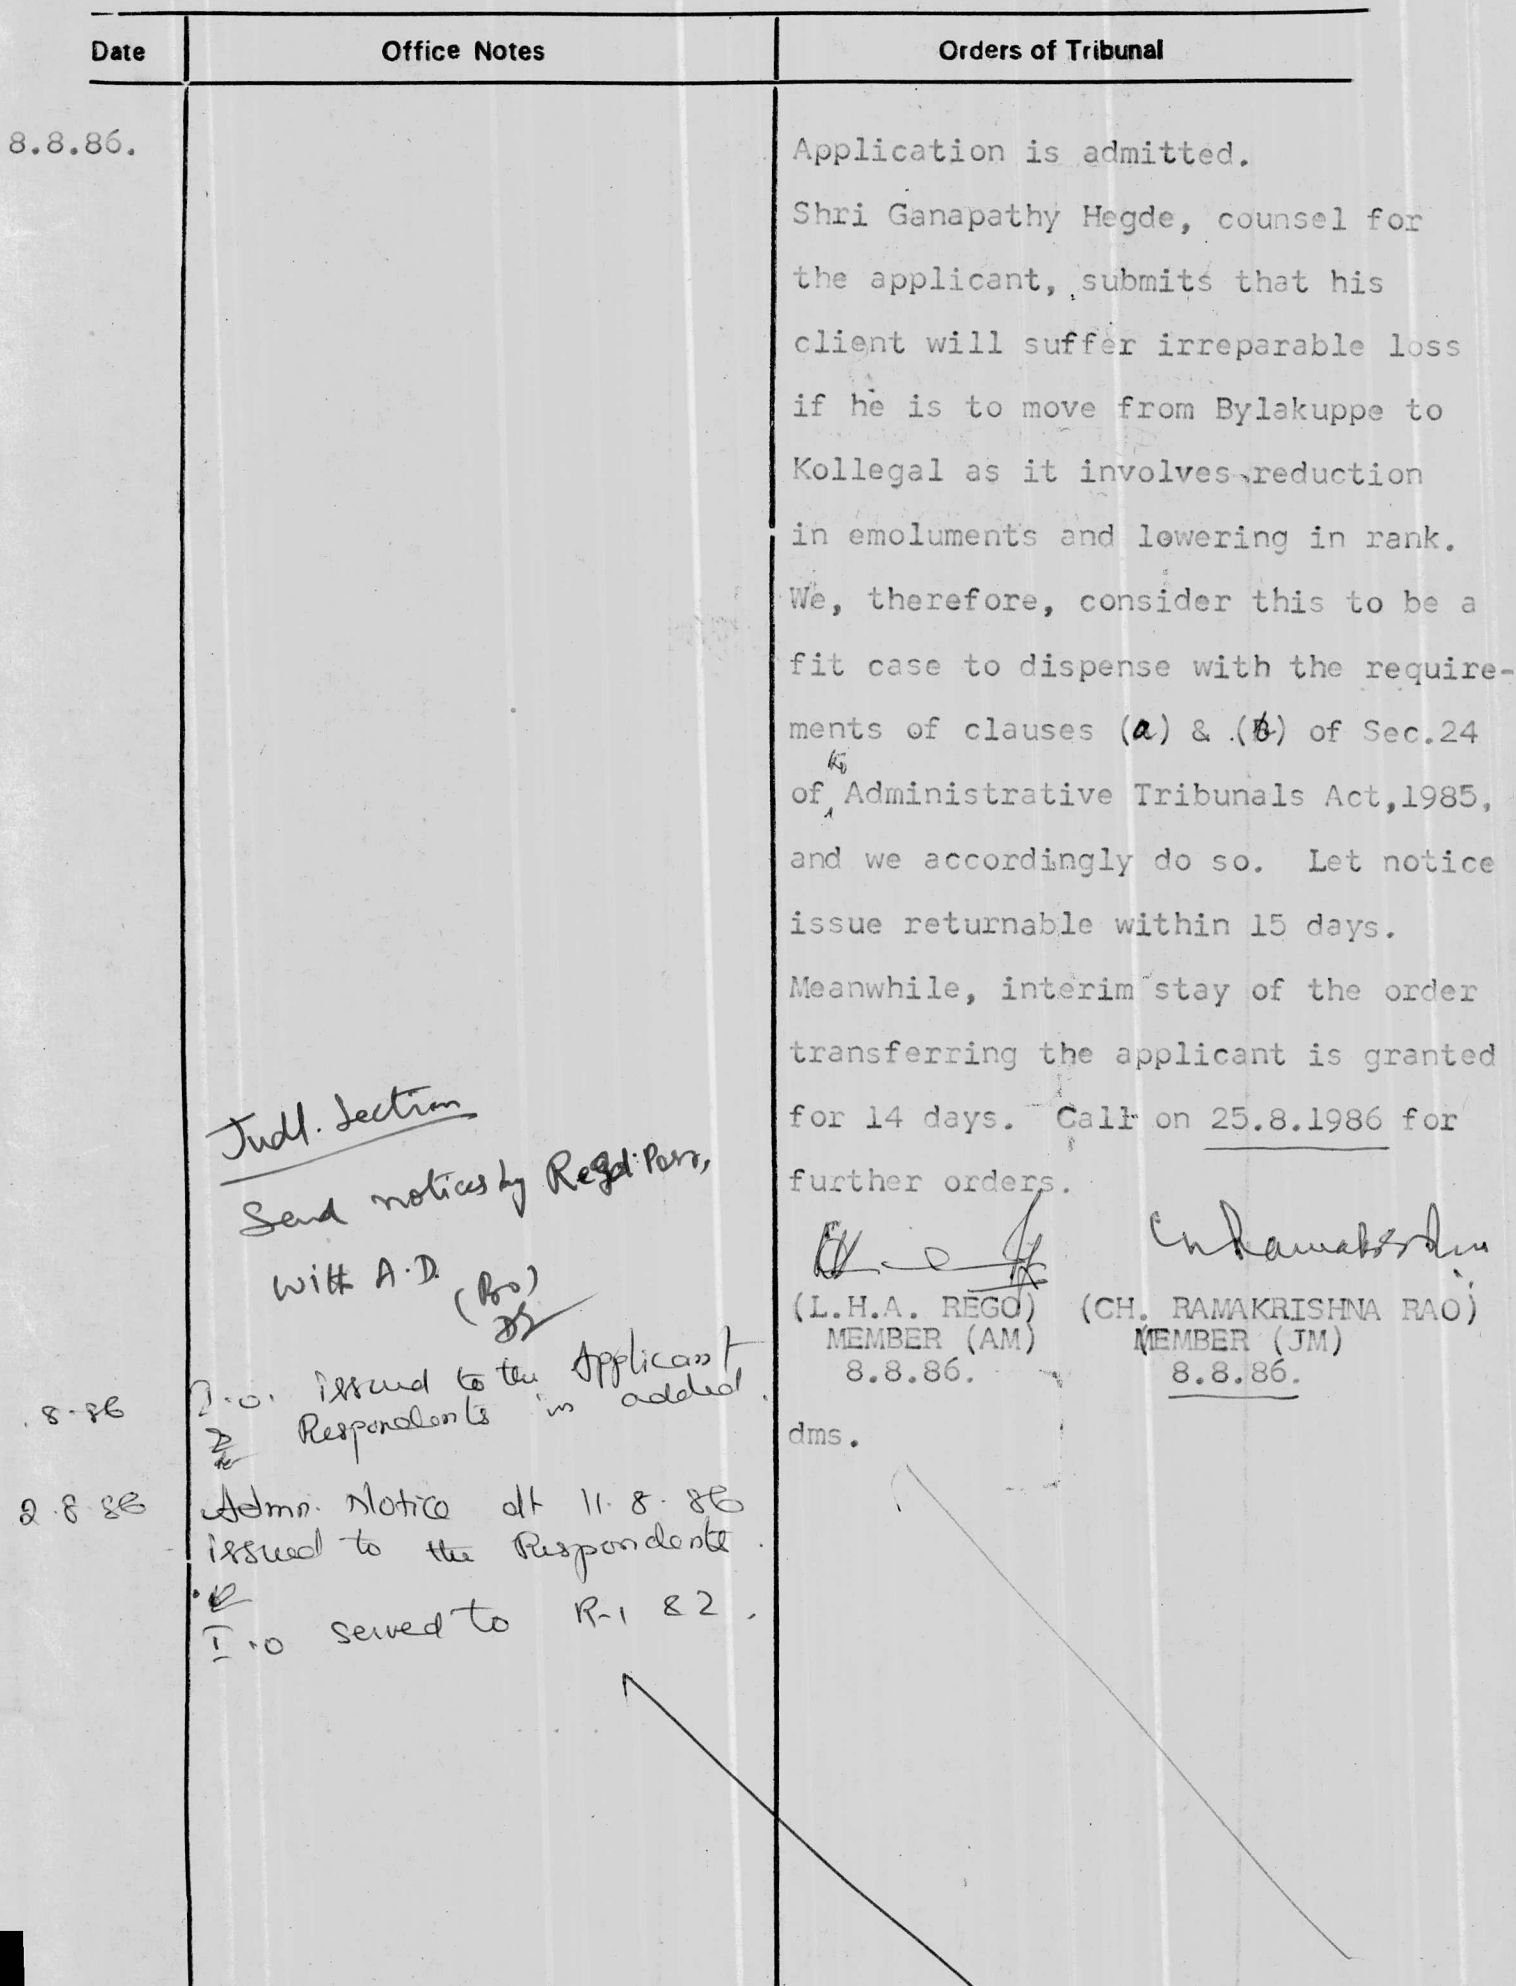 Date Office Notes Orders of Tribunal
8.8.86.
Application is admitted.
Shri Ganapathy Hegde, counsel for
the applicant, submits that his
client will suffer irreparable loss
if he is to move from Bylakuppe to
Kollegal as it involves reduction
in emoluments and lowering in rank.
We, therefore, consider this to be a
fit case to dispense with the require-
ments of clauses (a) & (b) of Sec.24
of the Administrative Tribunals Act,1985,
and we accordingly do so. Let notice
issue returnable within 15 days.
Meanwhile, interim stay of the order
transferring the applicant is granted
for 14 days. Call on 25.8.1986 for
further orders.
(L.H.A. REGO) (CH. RAMAKRISHNA RAO)
MEMBER (AM) MEMBER (JM)
8.8.86. 8.8.86.
dms.
Judl. Section
Send notices by Regd. Post,
with A.D.
.8-86 I.O. issued to the Applicant
Respondents in added.
2.8.86 Admn. Notice dt 11.8.86
issued to the Respondents.
I.O served to R-1 & 2.